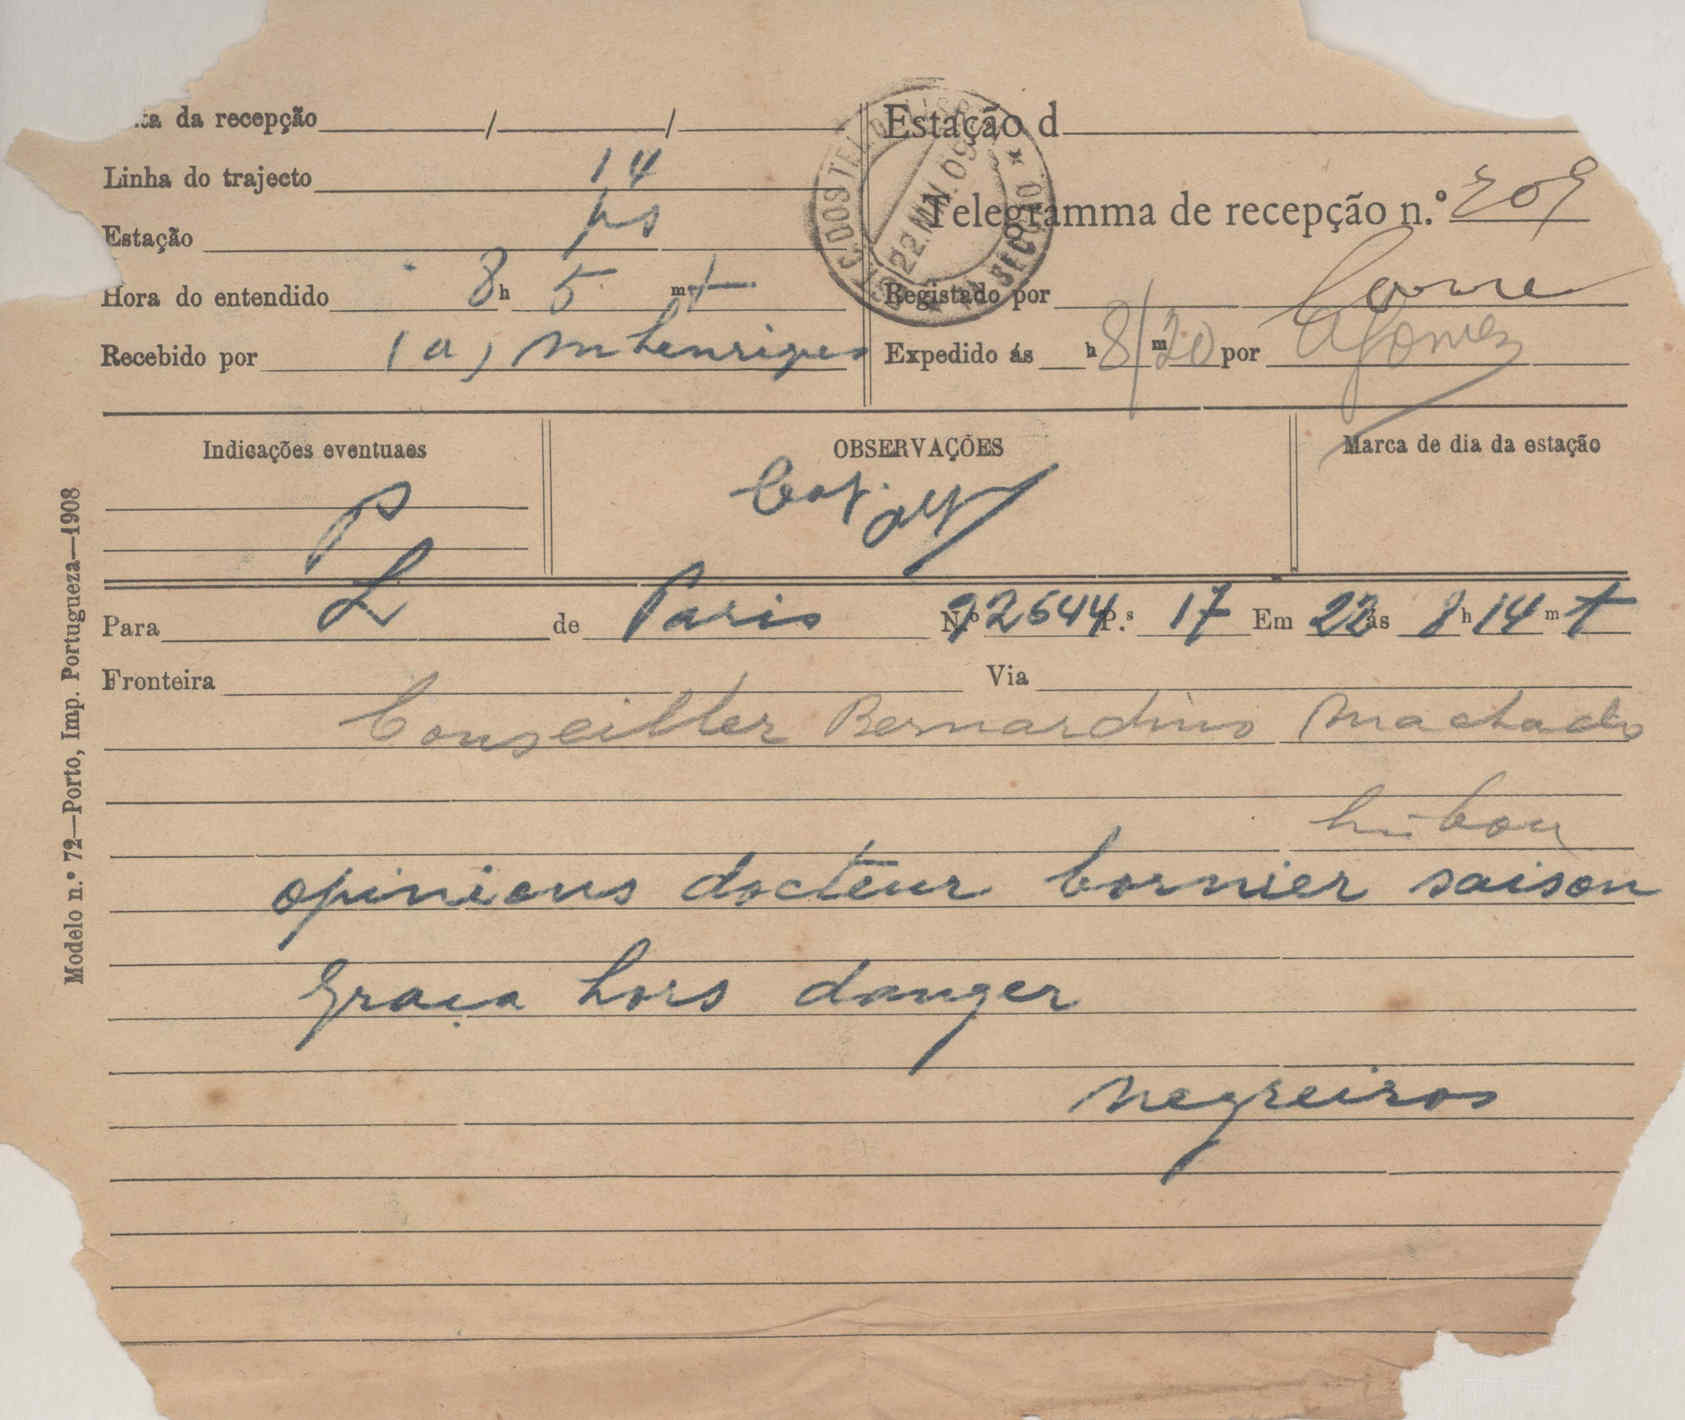 ta da recepção / /
Linha do trajecto 14
Estação ps
Hora do entendido 8 h 5 m t
Recebido por (a) M Henriques
Estação d
Telegramma de recepção n.º 209
Registado por
Expedido ás h 8/20 m por AGomez
22.MAI.09
Indicações eventuaes
OBSERVAÇÕES
Marca de dia da estação
P
Para L de Paris N.º 92644 P.s 17 Em 22 ás 8 h 14 m t
Fronteira Via
Conseiller Bernardino Machado
Lisbou
opinions docteur bornier saison
Graça hors danger
Negreiros
Modelo n.º 72—Porto, Imp. Portugueza—1908